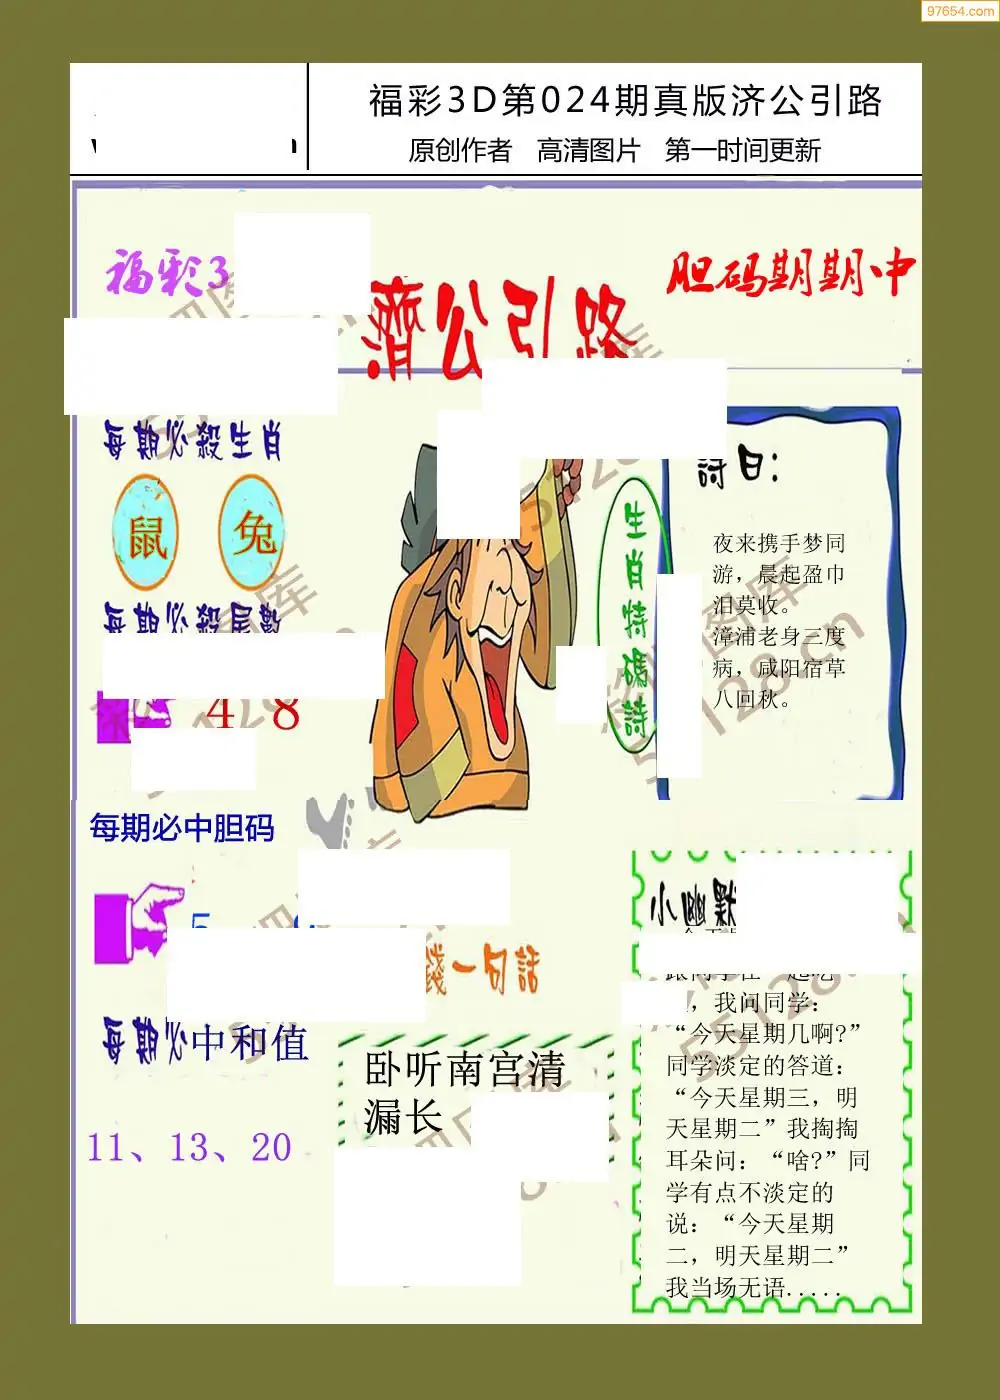 97654.com
福彩3D第024期真版济公引路
原创作者 高清图片 第一时间更新
福彩3
胆码期期中
濟公引路
每期必殺生肖
鼠 兔
每期必殺尾數
4 8
生肖特碼詩
詩曰:
夜来携手梦同
游，晨起盈巾
泪莫收。
漳浦老身三度
病，咸阳宿草
八回秋。
每期必中胆码
小幽默
錢一句話
卧听南宫清
漏长
每期必中和值
11、13、20
，我问同学：
“今天星期几啊?”
同学淡定的答道：
“今天星期三，明
天星期二”我掏掏
耳朵问：“啥?”同
学有点不淡定的
说：“今天星期
二，明天星期二”
我当场无语.....